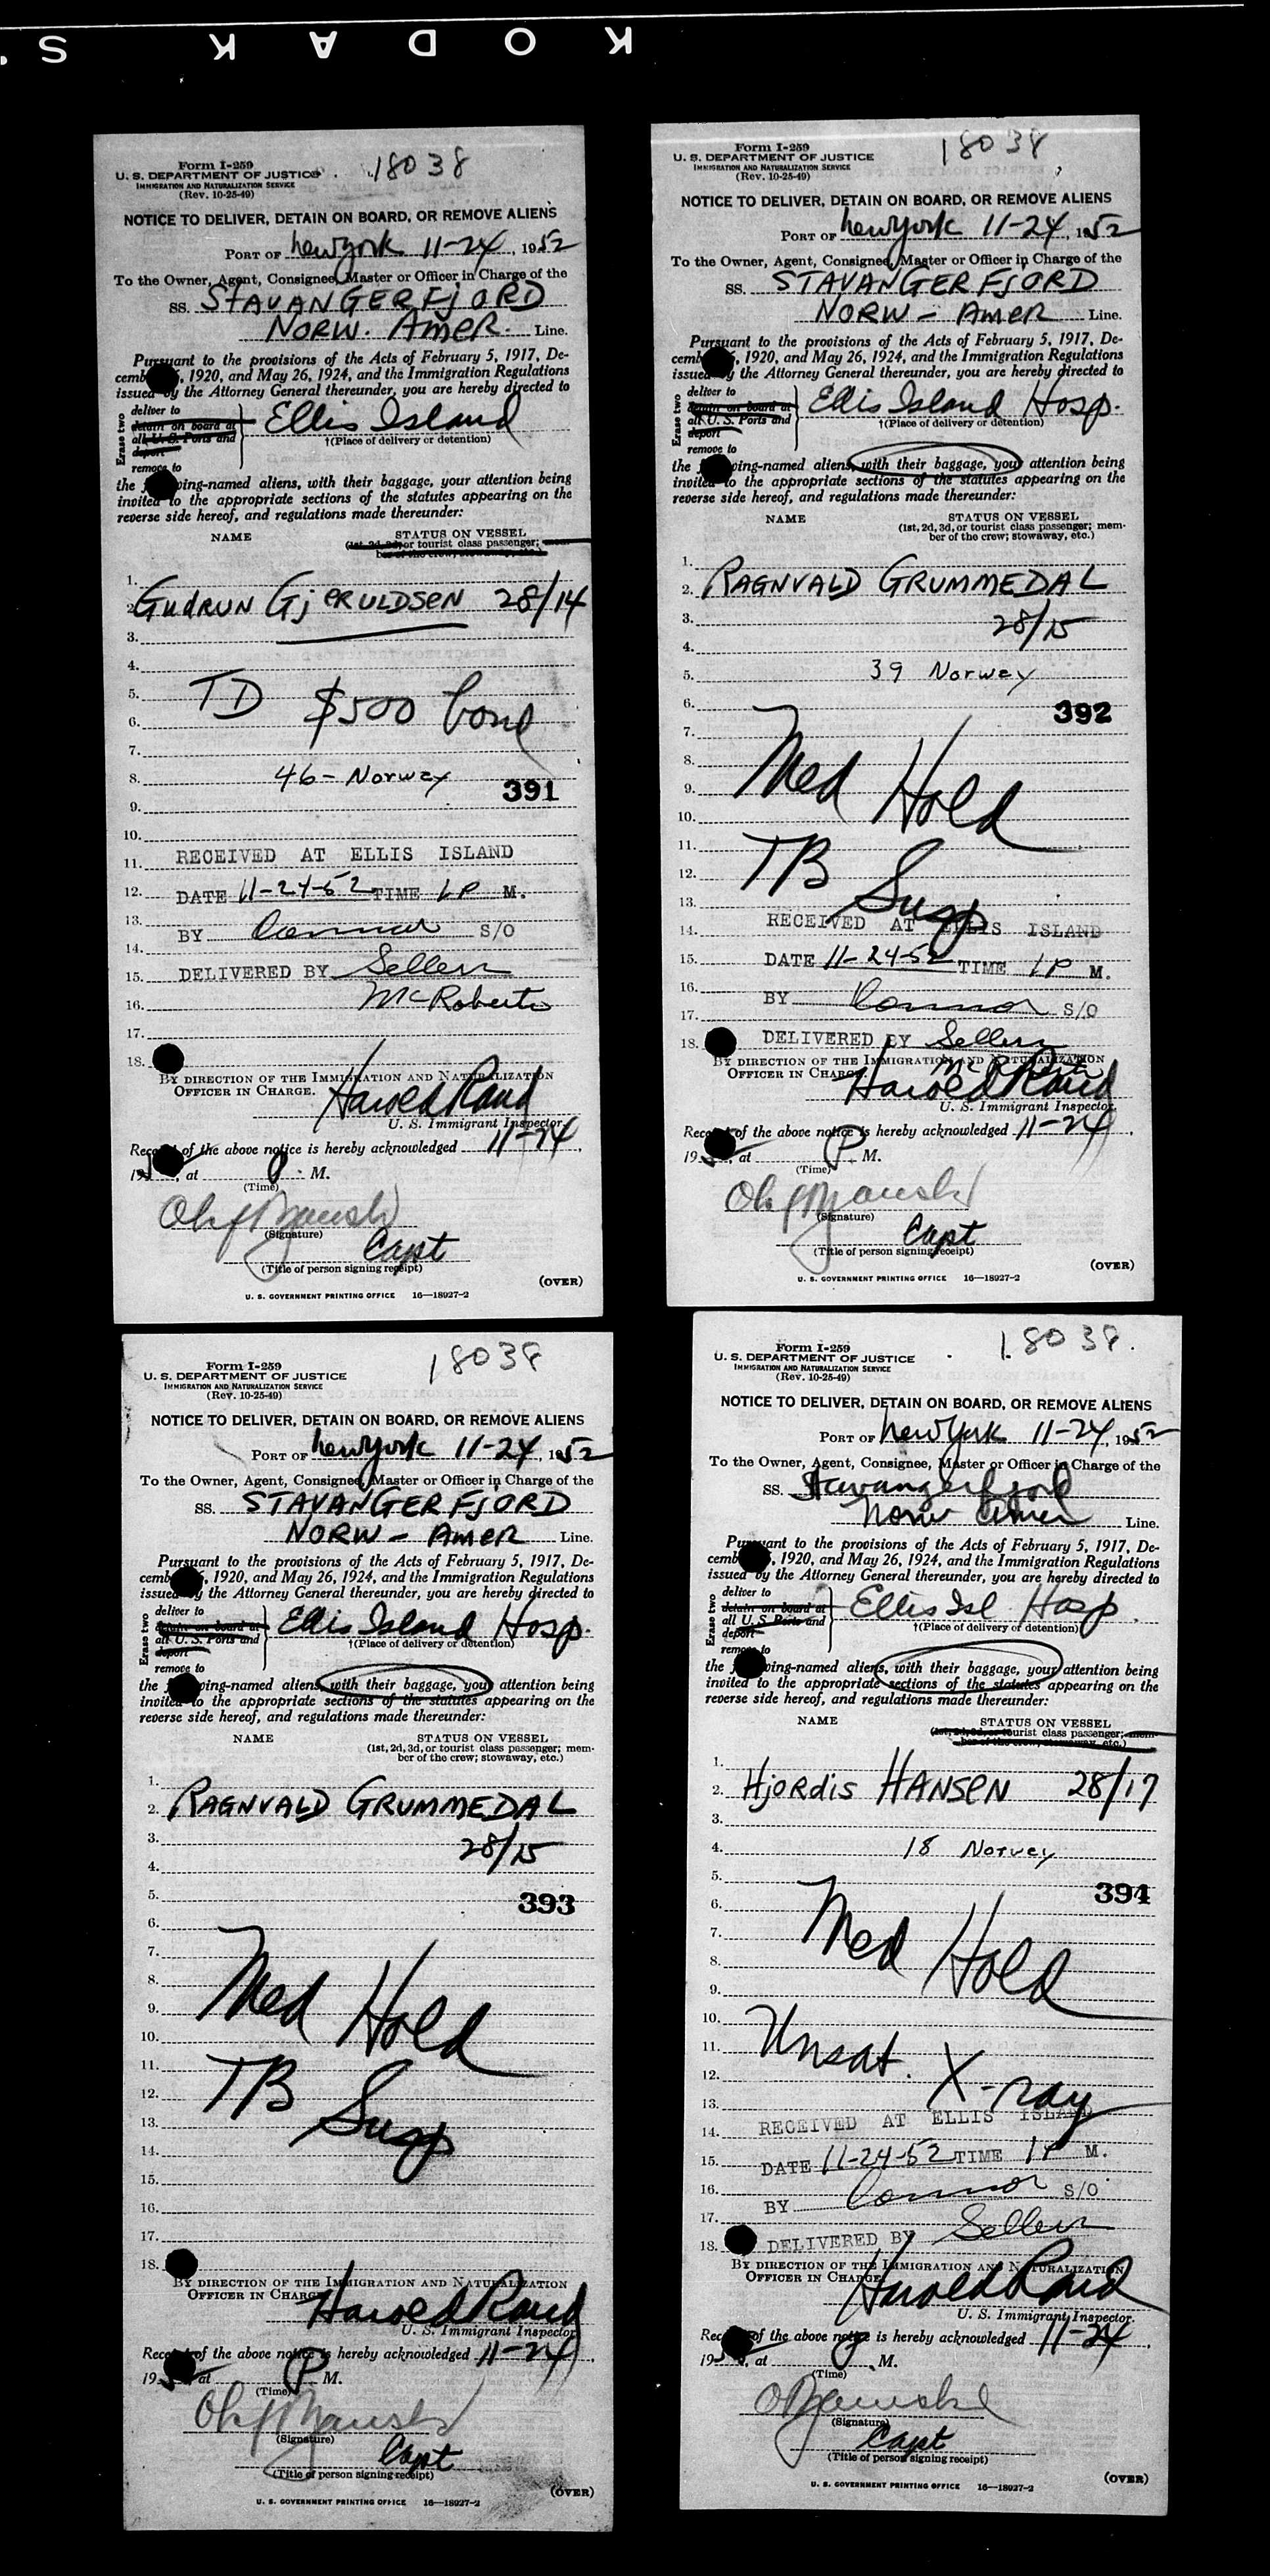 KODAK S
Form I-259
U. S. DEPARTMENT OF JUSTICE
18038
IMMIGRATION AND NATURALIZATION SERVICE
(Rev. 10-25-49)
NOTICE TO DELIVER, DETAIN ON BOARD, OR REMOVE ALIENS
PORT OF New York 11-24, 1952
To the Owner, Agent, Consignee, Master or Officer in Charge of the
SS. STAVANGERFJORD
NORW. AMER. Line.
Pursuant to the provisions of the Acts of February 5, 1917, De-
cemb , 1920, and May 26, 1924, and the Immigration Regulations
issued by the Attorney General thereunder, you are hereby directed to
Erase two
deliver to
detain on board at
all U. S. Ports and
deport
remove to
Ellis Island
†(Place of delivery or detention)
the f wing-named aliens, with their baggage, your attention being
invited to the appropriate sections of the statutes appearing on the
reverse side hereof, and regulations made thereunder:
NAME STATUS ON VESSEL
(1st, 2d, 3d, or tourist class passenger; mem-
ber of the crew; stowaway, etc.)
1.
2. GUDRUN GJERULDSEN 28/14
3.
4.
5. TD $500 bond
6.
7.
8. 46 - Norway
391
9.
10.
11. RECEIVED AT ELLIS ISLAND
12. DATE 11-24-52 TIME 1 P M.
13. BY Connor S/O
14.
15. DELIVERED BY Sellers
16. McRoberts
17.
18.
BY DIRECTION OF THE IMMIGRATION AND NATURALIZATION
OFFICER IN CHARGE.
Harold Rand
U. S. Immigrant Inspector.
Receipt of the above notice is hereby acknowledged 11-24,
1952, at P. M.
(Time)
(Signature)
Capt
(Title of person signing receipt)
(OVER)
U. S. GOVERNMENT PRINTING OFFICE 16—18927-2
Form I-259
U. S. DEPARTMENT OF JUSTICE
18038
IMMIGRATION AND NATURALIZATION SERVICE
(Rev. 10-25-49)
NOTICE TO DELIVER, DETAIN ON BOARD, OR REMOVE ALIENS
PORT OF New York 11-24, 1952
To the Owner, Agent, Consignee, Master or Officer in Charge of the
SS. STAVANGERFJORD
NORW - AMER Line.
Pursuant to the provisions of the Acts of February 5, 1917, De-
cemb , 1920, and May 26, 1924, and the Immigration Regulations
issued by the Attorney General thereunder, you are hereby directed to
Erase two
deliver to
detain on board at
all U. S. Ports and
deport
remove to
Ellis Island Hosp.
†(Place of delivery or detention)
the f wing-named aliens, with their baggage, your attention being
invited to the appropriate sections of the statutes appearing on the
reverse side hereof, and regulations made thereunder:
NAME STATUS ON VESSEL
(1st, 2d, 3d, or tourist class passenger; mem-
ber of the crew; stowaway, etc.)
1.
2. RAGNVALD GRUMMEDAL
3. 28/15
4.
5. 39 Norway
6. 392
7.
8. Med Hold
9.
10.
11.
12. TB Susp
13.
14. RECEIVED AT ELLIS ISLAND
15. DATE 11-24-52 TIME 1 P M.
16. BY Connor S/O
17.
18. DELIVERED BY Sellers
McRoberts
BY DIRECTION OF THE IMMIGRATION AND NATURALIZATION
OFFICER IN CHARGE.
Harold Rand
U. S. Immigrant Inspector.
Receipt of the above notice is hereby acknowledged 11-24,
1952, at P. M.
(Time)
(Signature)
Capt
(Title of person signing receipt)
(OVER)
U. S. GOVERNMENT PRINTING OFFICE 16—18927-2
Form I-259
U. S. DEPARTMENT OF JUSTICE
18038
IMMIGRATION AND NATURALIZATION SERVICE
(Rev. 10-25-49)
NOTICE TO DELIVER, DETAIN ON BOARD, OR REMOVE ALIENS
PORT OF New York 11-24, 1952
To the Owner, Agent, Consignee, Master or Officer in Charge of the
SS. STAVANGERFJORD
NORW - AMER Line.
Pursuant to the provisions of the Acts of February 5, 1917, De-
cemb , 1920, and May 26, 1924, and the Immigration Regulations
issued by the Attorney General thereunder, you are hereby directed to
Erase two
deliver to
detain on board at
all U. S. Ports and
deport
remove to
Ellis Island Hosp.
†(Place of delivery or detention)
the f wing-named aliens, with their baggage, your attention being
invited to the appropriate sections of the statutes appearing on the
reverse side hereof, and regulations made thereunder:
NAME STATUS ON VESSEL
(1st, 2d, 3d, or tourist class passenger; mem-
ber of the crew; stowaway, etc.)
1.
2. RAGNVALD GRUMMEDAL
3. 28/15
4.
5. 393
6.
7.
8. Med Hold
9.
10.
11.
12. TB Susp
13.
14.
15.
16.
17.
18.
BY DIRECTION OF THE IMMIGRATION AND NATURALIZATION
OFFICER IN CHARGE.
Harold Rand
U. S. Immigrant Inspector
Receipt of the above notice is hereby acknowledged 11-24,
1952, at P. M.
(Time)
(Signature)
Capt
(Title of person signing receipt)
(OVER)
U. S. GOVERNMENT PRINTING OFFICE 16—18927-2
Form I-259
U. S. DEPARTMENT OF JUSTICE
18038.
IMMIGRATION AND NATURALIZATION SERVICE
(Rev. 10-25-49)
NOTICE TO DELIVER, DETAIN ON BOARD, OR REMOVE ALIENS
PORT OF New York 11-24, 1952
To the Owner, Agent, Consignee, Master or Officer in Charge of the
SS. Stavangerfjord
Norw Amer Line.
Pursuant to the provisions of the Acts of February 5, 1917, De-
cemb , 1920, and May 26, 1924, and the Immigration Regulations
issued by the Attorney General thereunder, you are hereby directed to
Erase two
deliver to
detain on board at
all U. S. Ports and
deport
remove to
Ellis Isl Hosp.
†(Place of delivery or detention)
the f wing-named aliens, with their baggage, your attention being
invited to the appropriate sections of the statutes appearing on the
reverse side hereof, and regulations made thereunder:
NAME STATUS ON VESSEL
(1st, 2d, 3d, or tourist class passenger; mem-
ber of the crew; stowaway, etc.)
1.
2. HJORDIS HANSEN 28/17
3.
4. 18 Norway
5. 394
6.
7. Med Hold
8.
9.
10.
11. Unsat. X-ray
12.
13.
14. RECEIVED AT ELLIS ISLAND
15. DATE 11-24-52 TIME 1 P M.
16. BY Connor S/O
17.
18. DELIVERED BY Sellers
BY DIRECTION OF THE IMMIGRATION AND NATURALIZATION
OFFICER IN CHARGE.
Harold Rand
U. S. Immigrant Inspector.
Receipt of the above notice is hereby acknowledged 11-24,
1952, at M.
(Time)
(Signature)
Capt
(Title of person signing receipt)
(OVER)
U. S. GOVERNMENT PRINTING OFFICE 16—18927-2